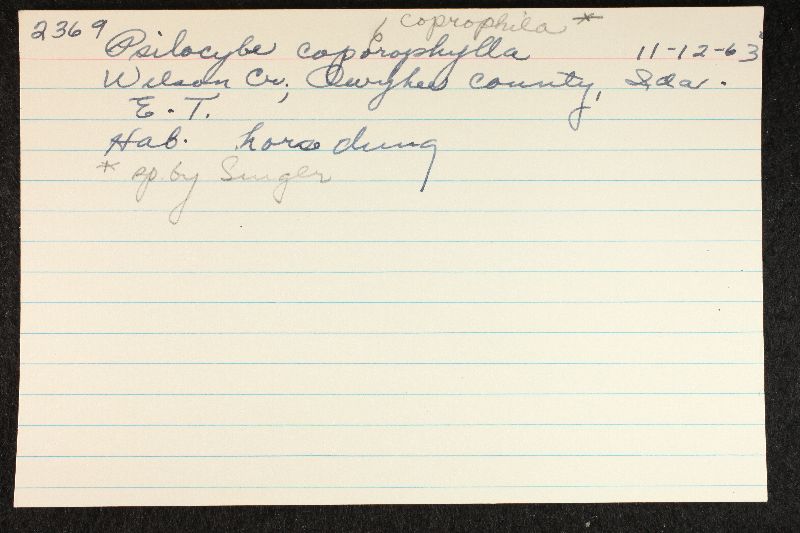 coprophila *
2369 Psilocybe coporophylla 11-12-63
Wilson Cr., Owyhee county, Ida.
E. T.
Hab. horse dung
* sp. by Singer